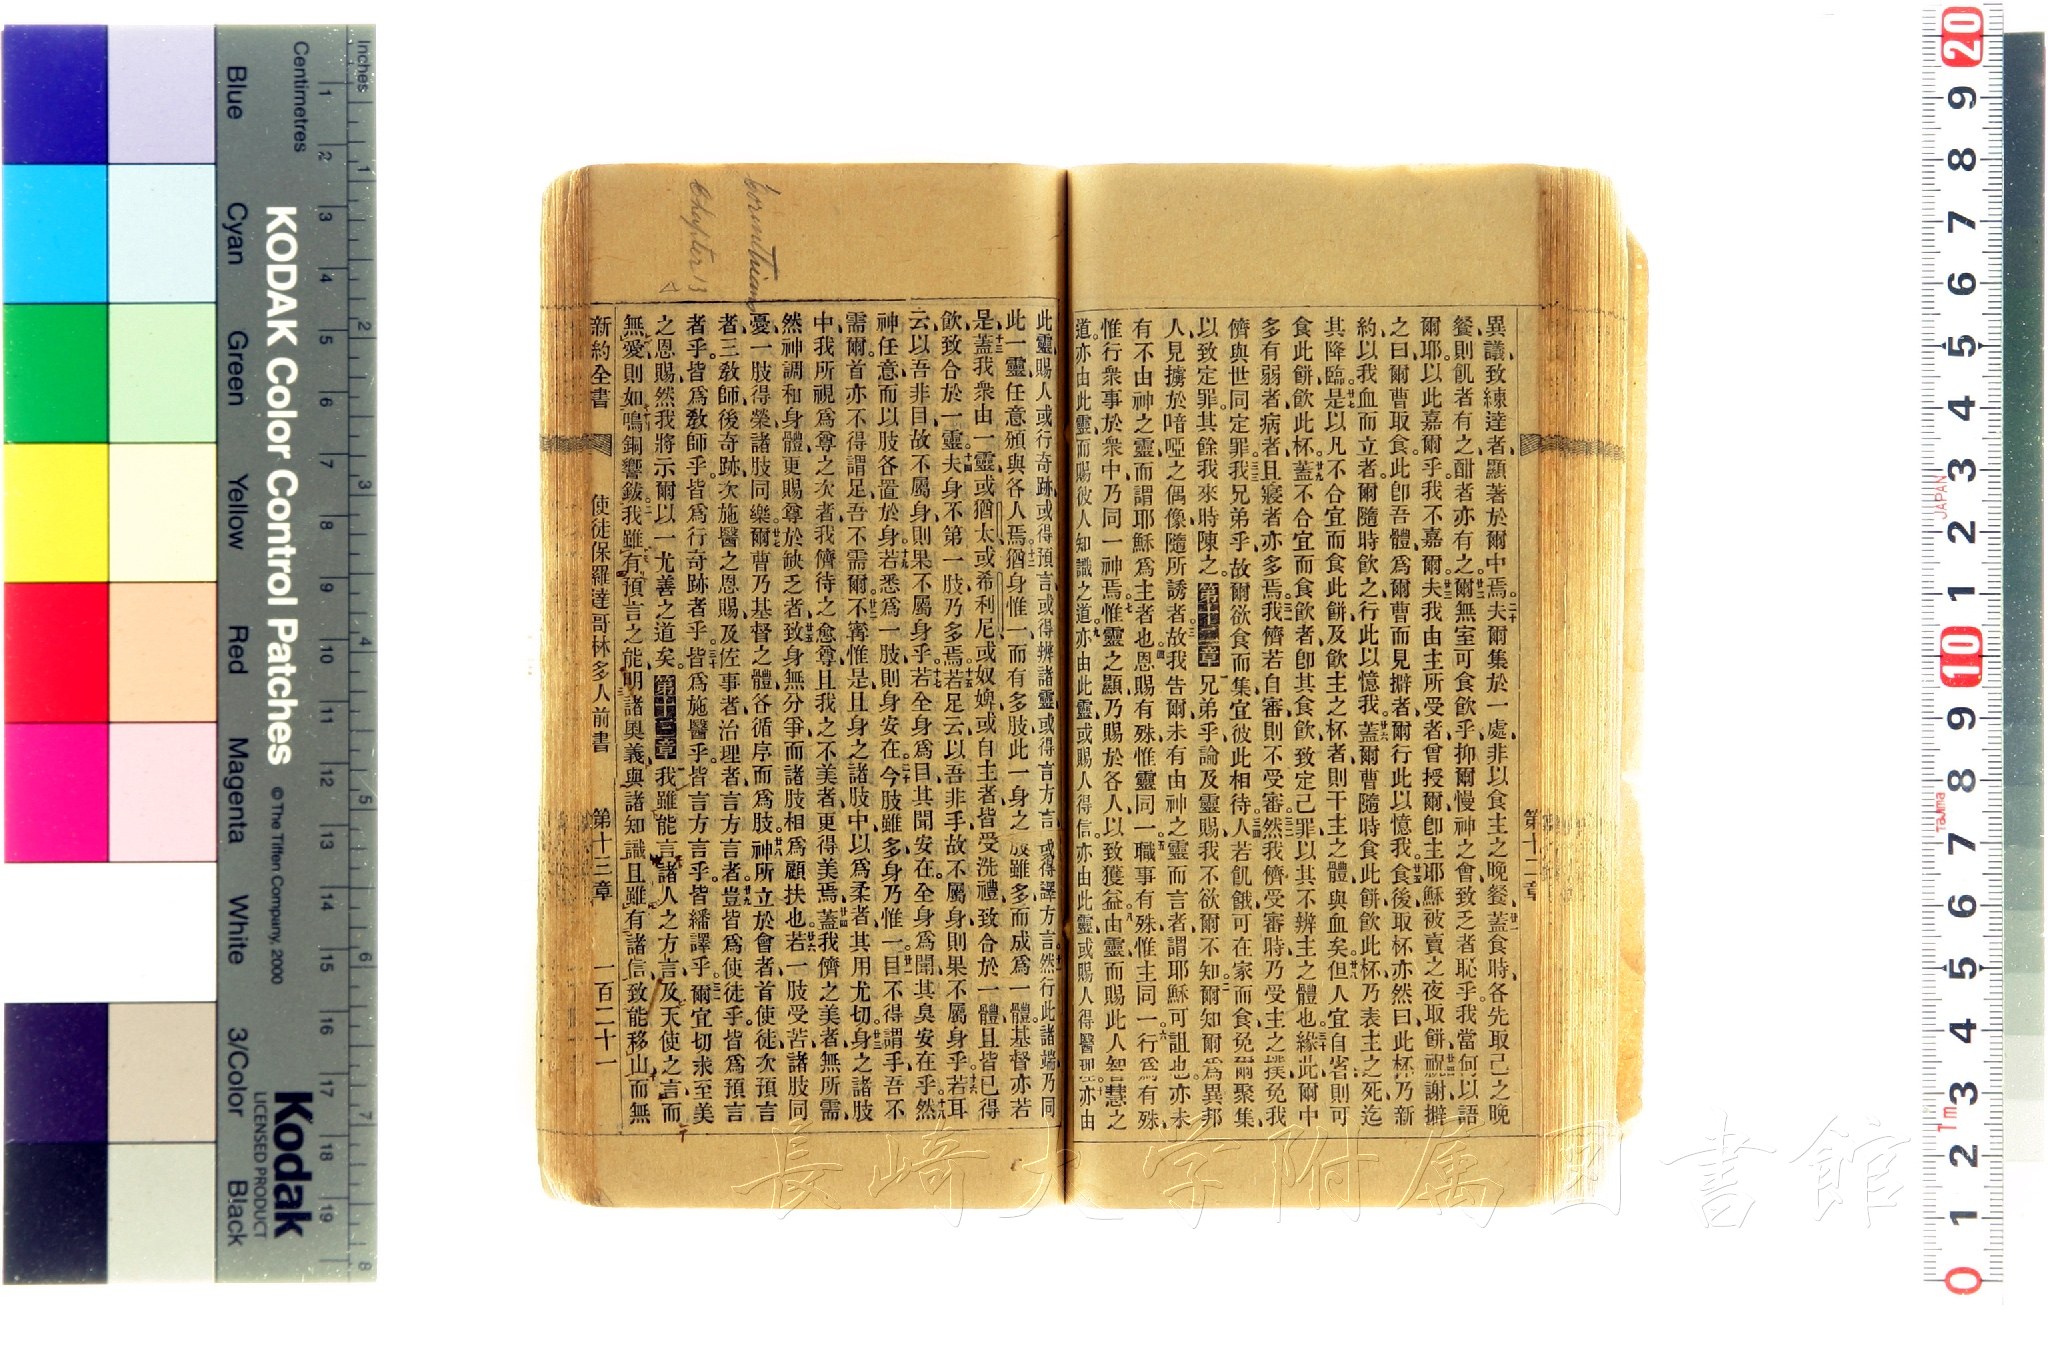 異議致練達者顯著於爾中焉夫爾集於一處非以食主之晚餐蓋食時各先取己之晚
餐則飢者有之酣者亦有之爾無室可食飲乎抑爾慢神之會致乏者恥乎我當何以語
爾耶以此嘉爾乎我不嘉爾夫我由主所受者曾授爾卽主耶穌被賣之夜取餅祝謝擗
之曰爾曹取食此卽吾體爲爾曹而見擗者爾行此以憶我食後取杯亦然曰此杯乃新
約以我血而立者爾隨時飲之行此以憶我蓋爾曹隨時食此餅飲此杯乃表主之死迄
其降臨是以凡不合宜而食此餅及飲主之杯者則干主之體與血矣但人宜自省則可
食此餅飲此杯蓋不合宜而食飲者卽其食飲致定己罪以其不辨主之體也緣此爾中
多有弱者病者且寢者亦多焉我儕若自審則不受審然我儕受審時乃受主之撲免我
儕與世同定罪我兄弟乎故爾欲食而集宜彼此相待人若飢餓可在家而食免爾聚集
以致定罪其餘我來時陳之第十二章兄弟乎論及靈賜我不欲爾不知爾知爾爲異邦
人見擄於喑啞之偶像隨所誘者故我告爾未有由神之靈而言者謂耶穌可詛也亦未
有不由神之靈而謂耶穌爲主者也恩賜有殊惟靈同一職事有殊惟主同一行爲有殊
惟行衆事於衆中乃同一神焉惟靈之顯乃賜於各人以致獲益由靈而賜此人智慧之
道亦由此靈而賜彼人知識之道亦由此靈或賜人得信亦由此靈或賜人得醫理亦由
第十二章
此靈賜人或行奇跡或得預言或得辨諸靈或得言方言或得譯方言然行此諸端乃同
此一靈任意頒與各人焉猶身惟一而有多肢此一身之肢雖多而成爲一體基督亦若
是蓋我衆由一靈或猶太或希利尼或奴婢或自主者皆受洗禮致合於一體且皆已得
飲致合於一靈夫身不第一肢乃多焉若足云以吾非手故不屬身則果不屬身乎若耳
云以吾非目故不屬身則果不屬身乎若全身爲目其聞安在全身爲聞其臭安在乎然
神任意而以肢各置於身若悉爲一肢則身安在今肢雖多身乃惟一目不得謂手吾不
需爾首亦不得謂足吾不需爾不寗惟是且身之諸肢中以爲柔者其用尤切身之諸肢
中我所視爲尊之次者我儕待之愈尊且我之不美者更得美焉蓋我儕之美者無所需
然神調和身體更賜尊於缺乏者致身無分爭而諸肢相爲顧扶也若一肢受苦諸肢同
憂一肢得榮諸肢同樂爾曹乃基督之體各循序而爲肢神所立於會者首使徒次預言
者三教師後奇跡次施醫之恩賜及佐事者治理者言方言者豈皆爲使徒乎皆爲預言
者乎皆爲教師乎皆爲行奇跡者乎皆爲施醫乎皆言方言乎皆繙譯乎爾宜切求至美
之恩賜然我將示爾以一尤善之道矣第十三章我雖能言諸人之方言及天使之言而
無愛則如鳴銅響鈸我雖有預言之能明諸奧義與諸知識且雖有諸信致能移山而無
新約全書 使徒保羅達哥林多人前書 第十三章 一百二十一
Corinthians
Chapter 13
Inches
Centimetres
KODAK Color Control Patches © The Tiffen Company, 2000
Kodak
LICENSED PRODUCT
Blue Cyan Green Yellow Red Magenta White 3/Color Black
1 2 3 4 5 6 7 8 9 10 11 12 13 14 15 16 17 18 19
1 2 3 4 5 6 7 8
20 9 8 7 6 5 4 3 2 1 10 9 8 7 6 5 4 3 2 1 0
JAPAN
Tajima
Tm
長崎大学附属図書館